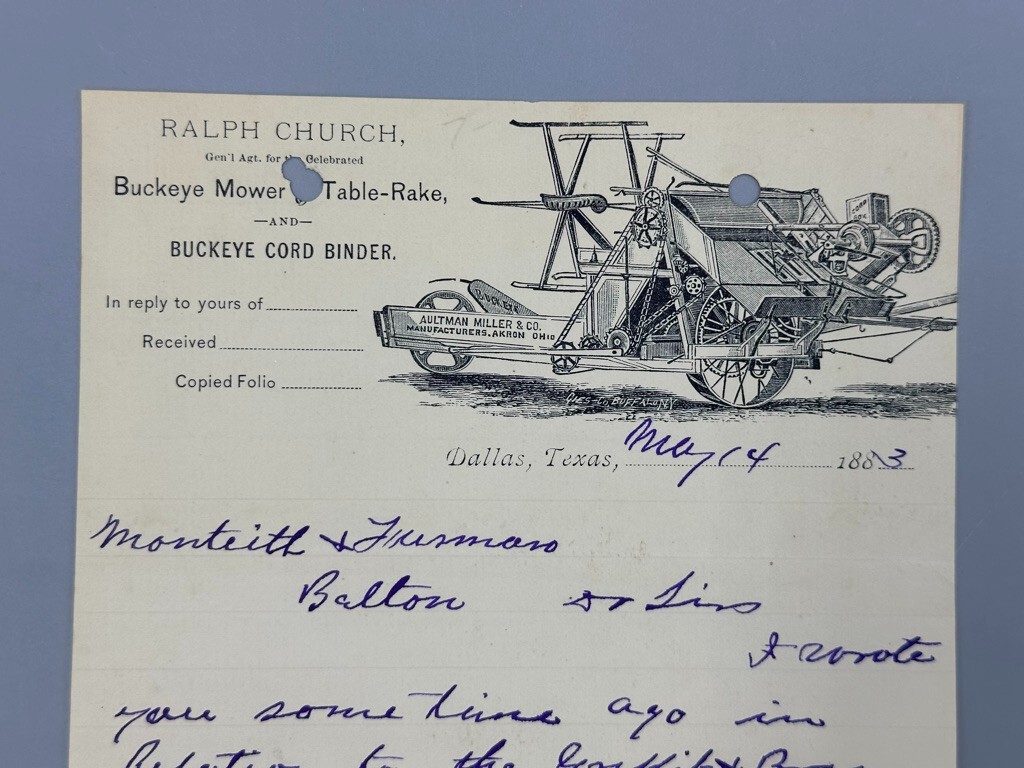 RALPH CHURCH,
Gen'l Agt. for the Celebrated
Buckeye Mower & Table-Rake,
—AND—
BUCKEYE CORD BINDER.
In reply to yours of
Received
Copied Folio
CORD BOX
BUCKEYE
AULTMAN MILLER & CO.
MANUFACTURERS, AKRON OHIO
BUFFALO N.Y.
Dallas, Texas, May 14 1883
Monteith & Furman
Balton Dr Sirs
I wrote
you some time ago in
Relation to the